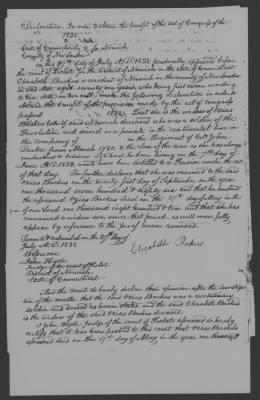 Declaration. In order to obtain the benefit of the act of Congress of the
1832
State of Connecticut } ss. Norwich
County of New London
on this 27th day of July A.D. 1832 personally appeared before
the court of Probate for the District of Norwich in the state of Connecticut
Elizabeth Backus a resident of Norwich in the county of New London
in said state aged seventy one years, who being first sworn according
to law, doth on her oath make the following declaration in order to
obtain the benefit of the provision made by the act of congress
passed 1832, That she is the widow of Ozias
Backus late of said who was a soldier of the
Revolution and served as a private in the continental line in
the company of in the Regiment of Col. John
Durkee from March 1780 to the close of the war as she has always
understood &
June A.D. 1832 until been entitled to a Pension under the act
of that day. She further declares that she was married to the said
Ozias Backus on the twenty first day of September in the year
one thousand seven hundred & eighty six and that her husband
the aforesaid Ozias Backus died on the 27th day of May in the
year of our Lord one thousand eight hundred & ten and that she has
remained a widow ever since that period, as will more fully
appear by reference to the proof hereon annexed.
Sworn to & subscribed on the 27th day of
July A.D. 1832
Elizabeth Backus
Before me
John Hyde
Judge of the court of Probate
District of Norwich
State of Connecticut
And the court do hereby declare their opinion after the investigation
of the matter that the said Ozias Backus was a revolutionary
soldier and served as herein stated and the said Elizabeth Backus
is the widow of the said Ozias Backus deceased.
I John Hyde, Judge of the court of Probate aforesaid do hereby
certify that it was been proved to this court that Ozias Backus
aforesaid died on the 27th day of May in the year one thousand